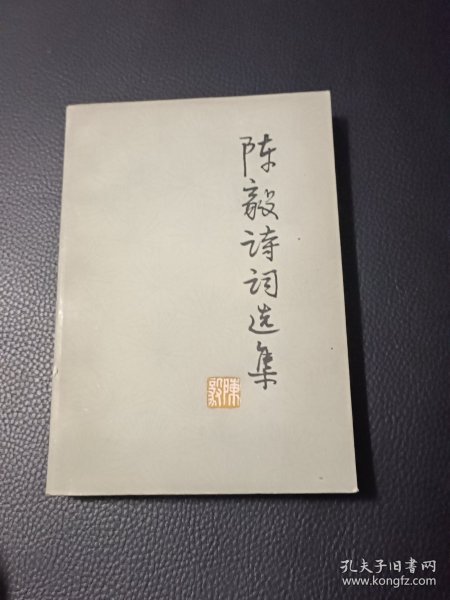 陈毅诗词选集
陳毅
孔夫子旧书网
www.kongfz.com